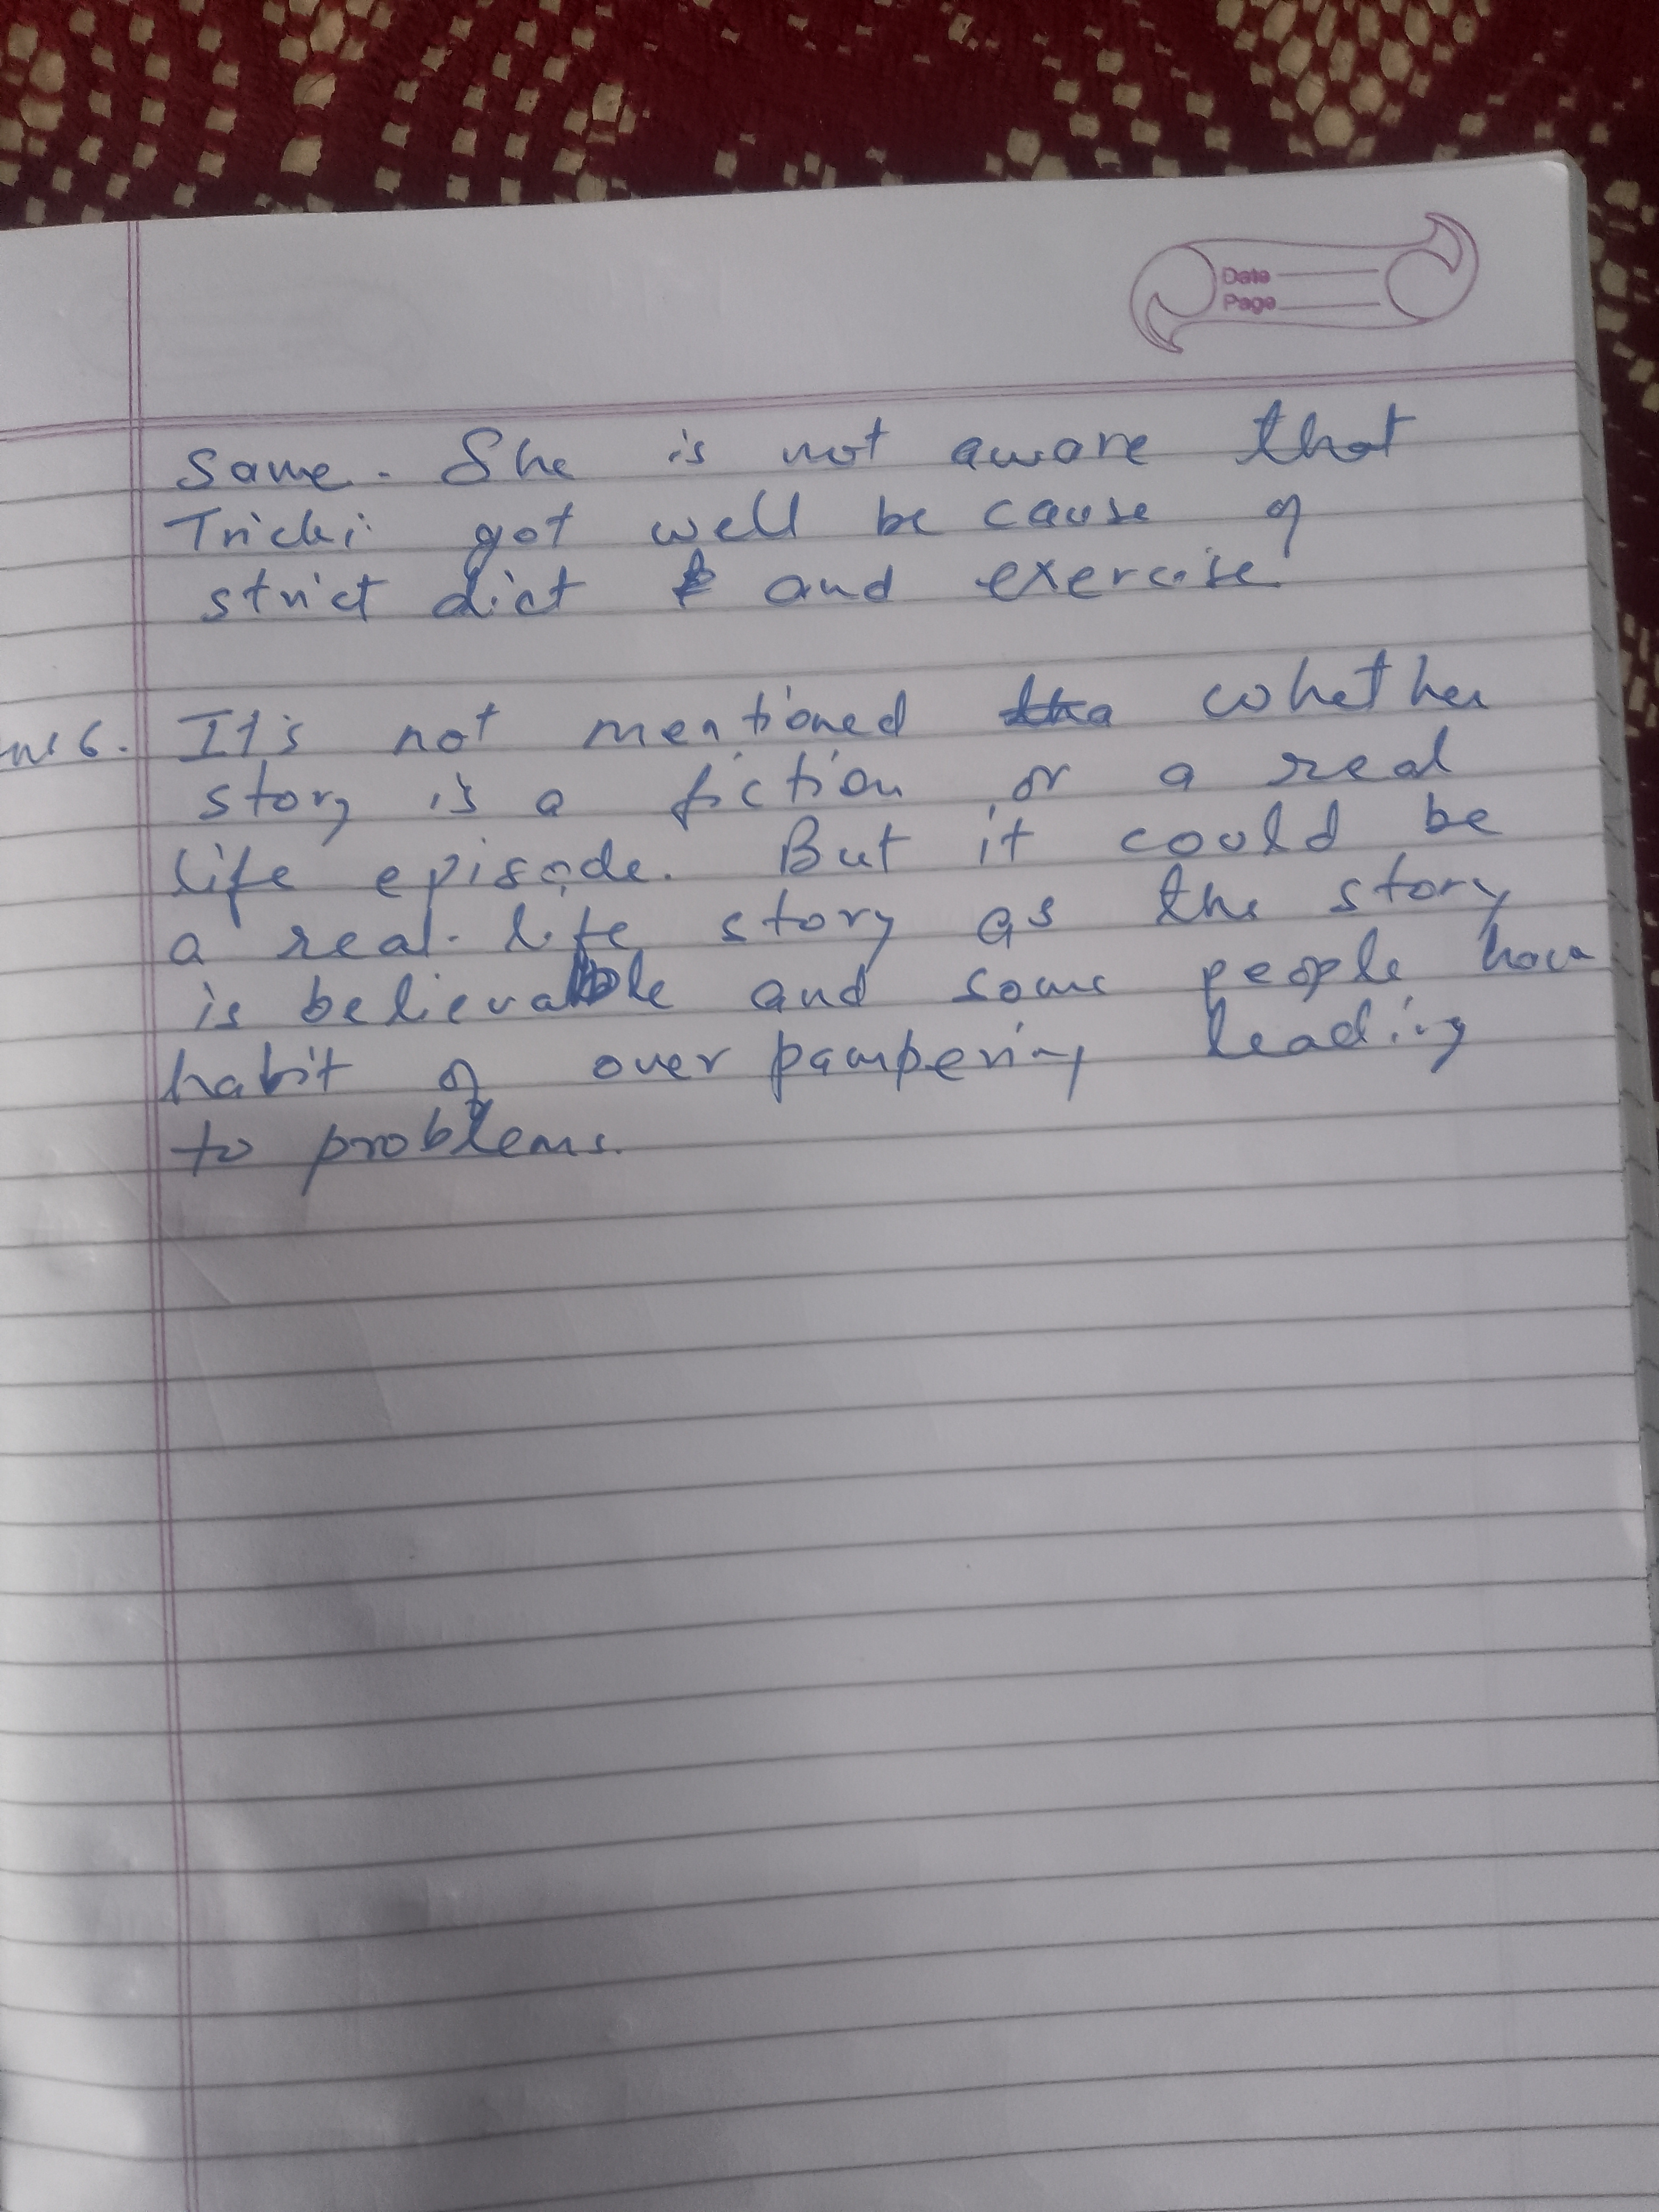 Date
Page
Same. She is not aware that
Tricki got well be cause of
strict diet and exercise
Ans 6. It's not mentioned whether
story is a fiction or a real
life episode. But it could be
a real life story as the story
is believable and some people have
habit of over pampering leading
to problems.